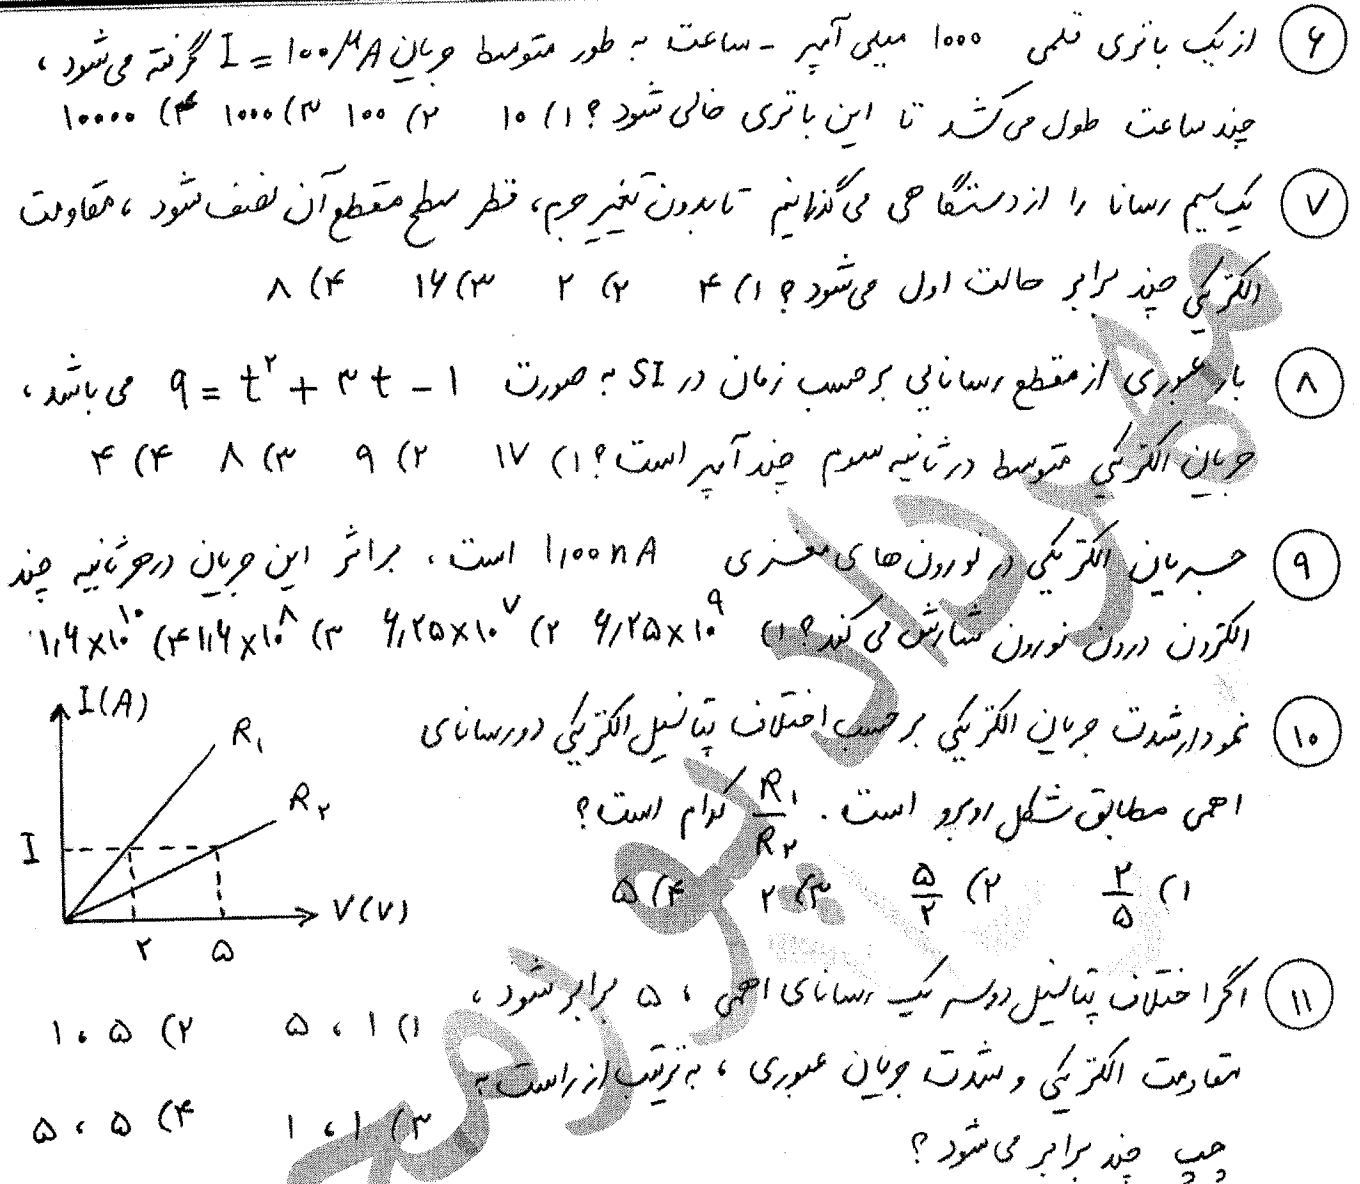 ۶) از یک باتری قلمی ۱۰۰۰ میلی آمپر - ساعت به طور متوسط جریان I = ۱۰۰ μA گرفته می‌شود،
چند ساعت طول می‌کشد تا این باتری خالی شود؟ ۱) ۱۰ ۲) ۱۰۰ ۳) ۱۰۰۰ ۴) ۱۰۰۰۰
۷) یک سیم رسانا را از دستگاهی می‌گذرانیم تا بدون تغییر جرم، قطر سطح مقطع آن نصف شود، مقاومت
الکتریکی چند برابر حالت اول می‌شود؟ ۱) ۴ ۲) ۲ ۳) ۱۶ ۴) ۸
۸) بار عبوری از مقطع رسانایی برحسب زمان در SI به صورت q = t² + ۳t - ۱ می باشد،
جریان الکتریکی متوسط در ثانیه سوم چند آمپر است؟ ۱) ۱۷ ۲) ۹ ۳) ۸ ۴) ۴
۹) جریان الکتریکی در نورون های مغزی ۱٫۰۰ nA است، براثر این جریان در هر ثانیه چند
الکترون درون نورون شارش می کند؟ ۱) ۶٫۲۵×۱۰⁹ ۲) ۶٫۲۵×۱۰⁷ ۳) ۱٫۶×۱۰⁸ ۴) ۱٫۶×۱۰¹⁰
۱۰) نمودار شدت جریان الکتریکی برحسب اختلاف پتانسیل الکتریکی دو رسانای
اهمی مطابق شکل روبرو است. R₁/R₂ کدام است؟
۱) ۲/۵ ۲) ۵/۲ ۳) ۲ ۴) ۵
I(A)
R₁
R₂
I
V(V)
۲ ۵
۱۱) اگر اختلاف پتانسیل دوسر یک رسانای اهمی، ۵ برابر شود،
مقاومت الکتریکی و شدت جریان عبوری، به ترتیب از راست به
چپ چند برابر می شود؟
۱) ۱ ، ۵ ۲) ۵ ، ۱
۳) ۱ ، ۱ ۴) ۵ ، ۵